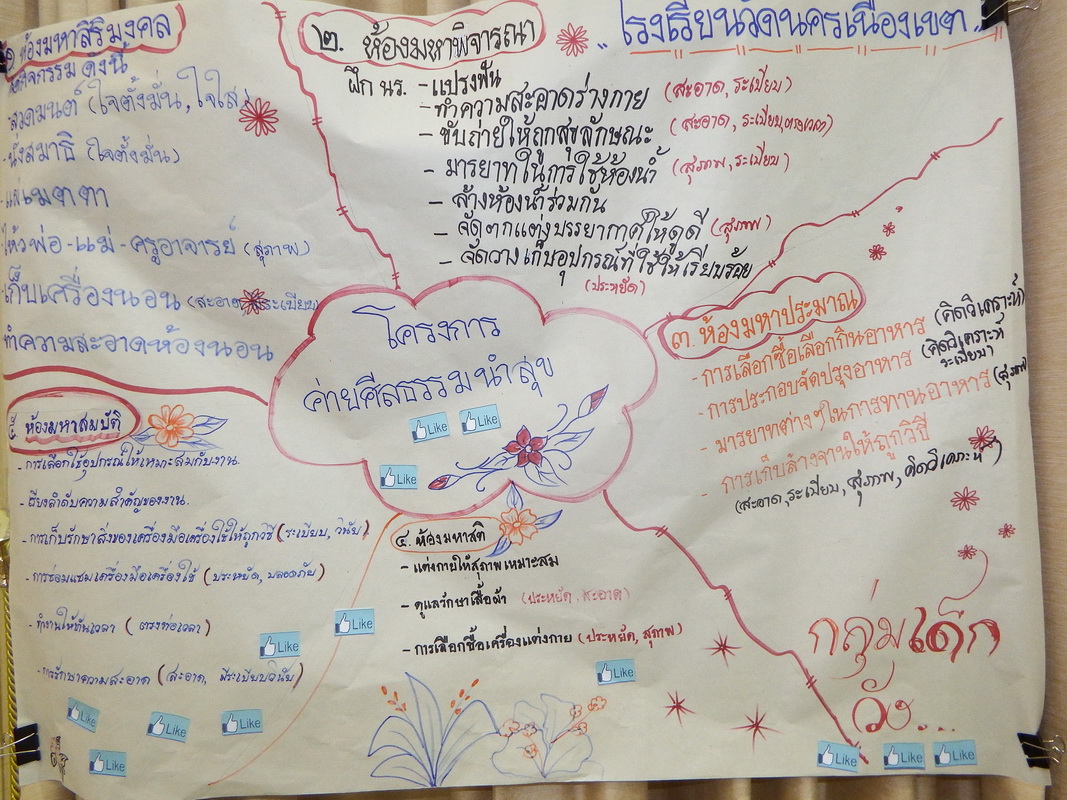 ๑ ห้องมหาสิริมงคล
กิจกรรม ดังนี้
-สวดมนต์ (ใจตั้งมั่น, ใจใส)
-นั่งสมาธิ (ใจตั้งมั่น)
-แผ่เมตตา
-ไหว้พ่อ-แม่-ครูอาจารย์ (สุภาพ)
-เก็บเครื่องนอน (สะอาด, ระเบียบ)
ทำความสะอาดห้องนอน
๒. ห้องมหาพิจารณา
ฝึก นร. - แปรงฟัน
- ทำความสะอาดร่างกาย (สะอาด, ระเบียบ)
- ขับถ่ายให้ถูกสุขลักษณะ (สะอาด, ระเบียบ, ตรงเวลา)
- มารยาทในการใช้ห้องน้ำ (สุภาพ, ระเบียบ)
- ล้างห้องน้ำร่วมกัน
- จัดตกแต่งบรรยากาศให้ดูดี (สุภาพ)
- จัดวางเก็บอุปกรณ์ที่ใช้ให้เรียบร้อย
(ประหยัด)
"โรงเรียนวัดนครเนื่องเขต"
๓. ห้องมหาประมาณ
- การเลือกซื้อเลือกกินอาหาร (คิดวิเคราะห์)
- การประกอบจัดปรุงอาหาร (คิดวิเคราะห์
ระเบียบ)
- มารยาทต่างๆในการทานอาหาร (สุภาพ)
- การเก็บล้างจานให้ถูกวิธี
(สะอาด, ระเบียบ, สุภาพ, คิดวิเคราะห์)
โครงการ
ค่ายศีลธรรมนำสุข
Like
Like
Like
๔. ห้องมหาสติ
- แต่งกายให้สุภาพเหมาะสม
- ดูแลรักษาเสื้อผ้า (ประหยัด, สะอาด)
- การเลือกซื้อเครื่องแต่งกาย (ประหยัด, สุภาพ)
Like
ห้องมหาสมบัติ
- การเลือกใช้อุปกรณ์ให้เหมาะสมกับงาน.
- เรียงลำดับความสำคัญของงาน.
- การเก็บรักษาสิ่งของเครื่องมือเครื่องใช้ให้ถูกวิธี (ระเบียบ, วินัย)
- การซ่อมแซมเครื่องมือเครื่องใช้ (ประหยัด, ปลอดภัย)
- ทำงานให้ทันเวลา (ตรงต่อเวลา)
- การรักษาความสะอาด (สะอาด, มีระเบียบวินัย)
Like
Like
Like
Like
Like
Like
กลุ่มเด็ก
วัง...
Like
Like
Like